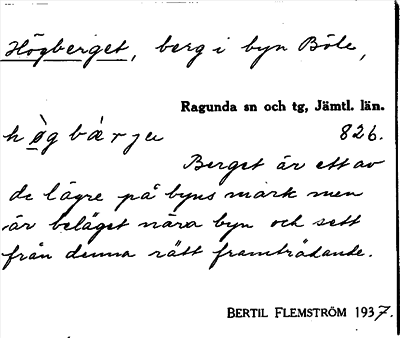 Högberget, berg i byn Böle,
Ragunda sn och tg, Jämtl. län.
826.
Berget är ett av
de lägre på byns mark men
är beläget nära byn och sett
från denna rätt framträdande.
BERTIL FLEMSTRÖM 1937.